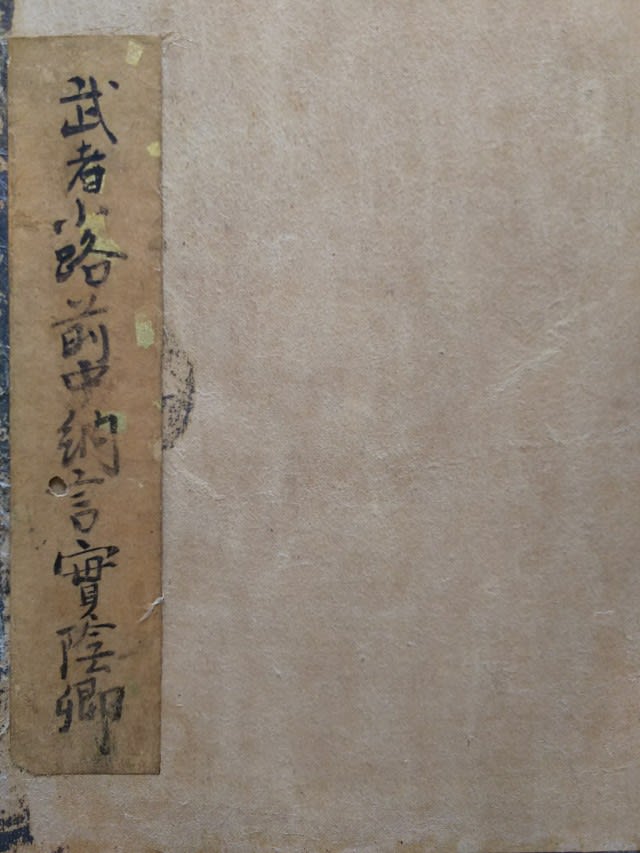 武者小路前中納言實陰卿